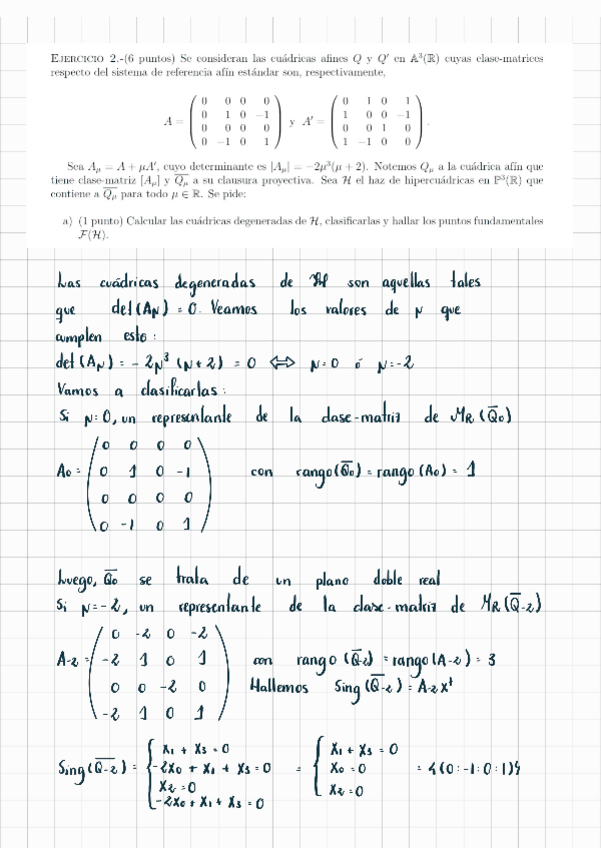 EJERCICIO 2.-(6 puntos) Se consideran las cuádricas afines Q y Q′ en 𝔸³(ℝ) cuyas clase-matrices
respecto del sistema de referencia afín estándar son, respectivamente,
A = ( 0 0 0 0 ; 0 1 0 −1 ; 0 0 0 0 ; 0 −1 0 1 ) y A′ = ( 0 1 0 1 ; 1 0 0 −1 ; 0 0 1 0 ; 1 −1 0 0 ) .
Sea Aμ = A + μA′, cuyo determinante es |Aμ| = −2μ³(μ + 2). Notemos Qμ a la cuádrica afín que
tiene clase-matriz [Aμ] y Q̅μ a su clausura proyectiva. Sea ℋ el haz de hipercuádricas en ℙ³(ℝ) que
contiene a Q̅μ para todo μ ∈ ℝ. Se pide:
a) (1 punto) Calcular las cuádricas degeneradas de ℋ, clasificarlas y hallar los puntos fundamentales
ℱ(ℋ).
Las cuádricas degeneradas de ℋ son aquellas tales
que det(Aμ) = 0. Veamos los valores de μ que
cumplen esto:
det(Aμ) = -2μ³(μ+2) = 0 ⇔ μ=0 ó μ=-2
Vamos a clasificarlas:
Si μ=0, un representante de la clase-matriz de M_R(Q̅0)
A0 = ( 0 0 0 0 ; 0 1 0 -1 ; 0 0 0 0 ; 0 -1 0 1 ) con rango(Q̅0) = rango(A0) = 1
Luego, Q̅0 se trata de un plano doble real
Si μ=-2, un representante de la clase-matriz de M_R(Q̅-2)
A-2 = ( 0 -2 0 -2 ; -2 1 0 1 ; 0 0 -2 0 ; -2 1 0 1 ) con rango(Q̅-2) = rango(A-2) = 3
Hallemos Sing(Q̅-2) = A-2 x^t
Sing(Q̅-2) = { x1 + x3 = 0 ; -2x0 + x1 + x3 = 0 ; x2 = 0 ; -2x0 + x1 + x3 = 0 = { x1 + x3 = 0 ; x0 = 0 ; x2 = 0 = {(0:-1:0:1)}